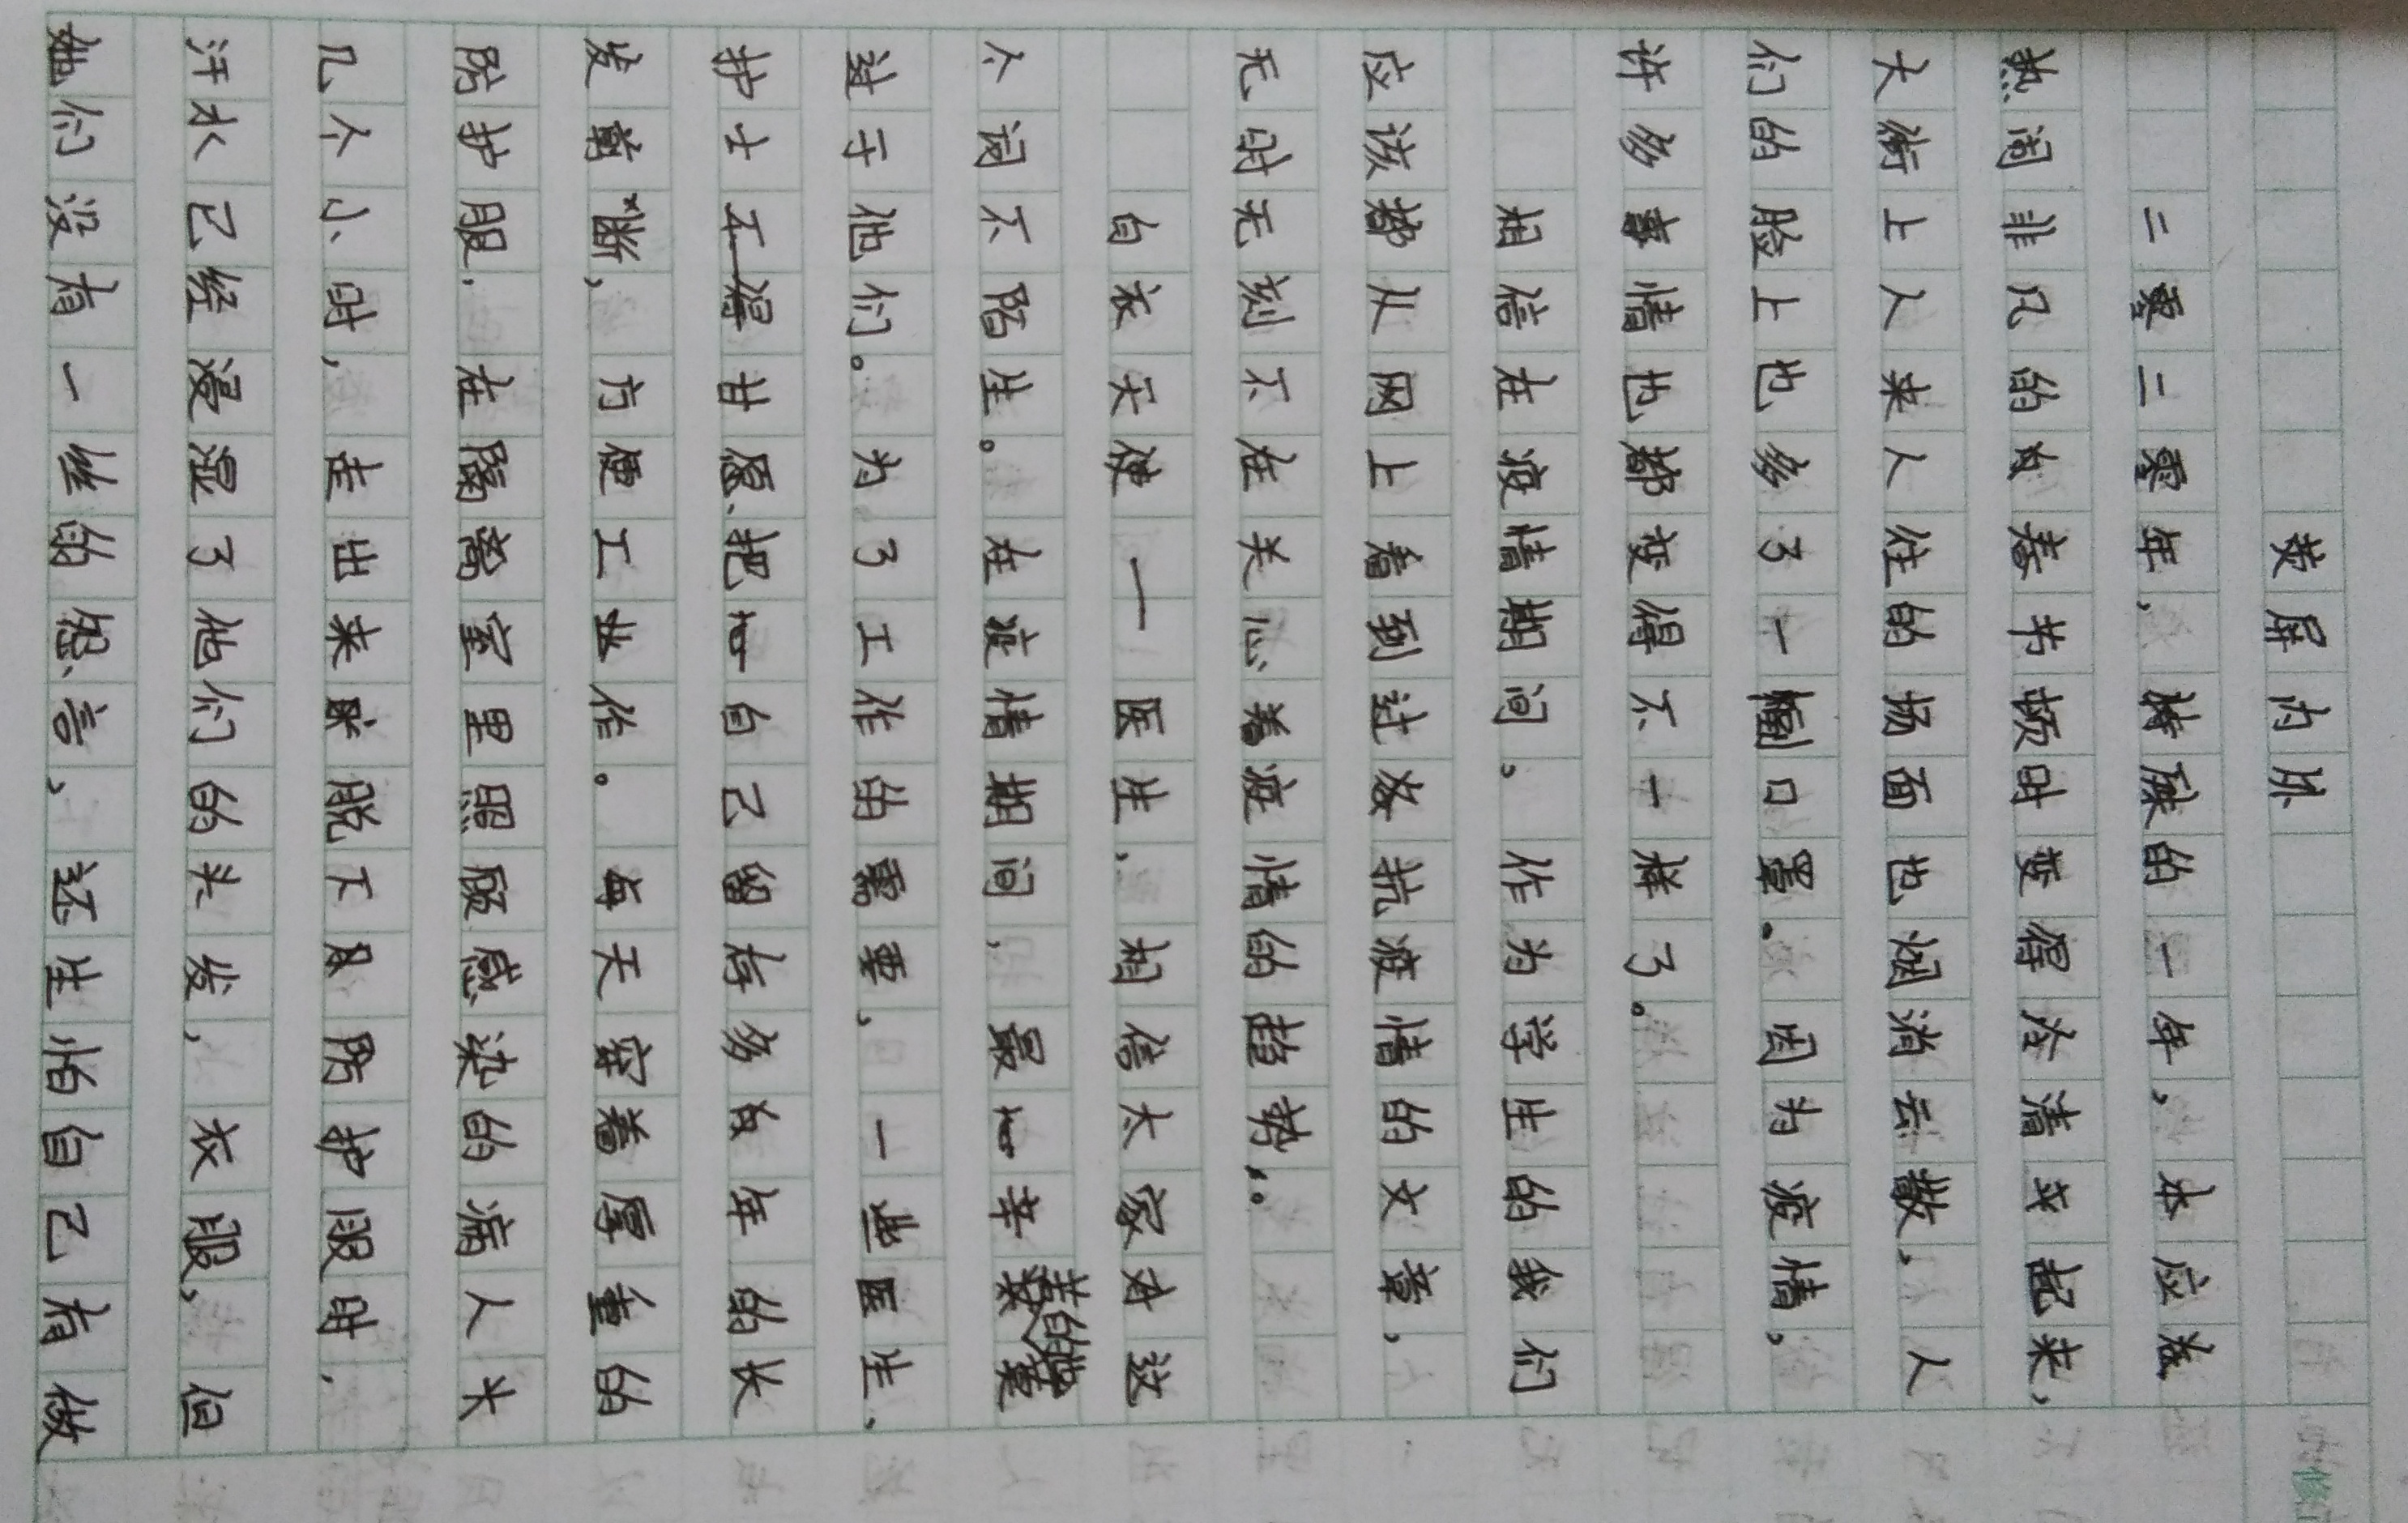 荧屏内外
二零二零年，特殊的一年，本应该
热闹非凡的的春节顿时变得冷清起来，
大街上人来人往的场面也烟消云散，人
们的脸上也多了一幅口罩。因为疫情，
许多事情也都变得不一样了。
相信在疫情期间。作为学生的我们
应该都从网上看到过好抗疫情的文章，
无时无刻不在关心着疫情的趋势。
白衣天使——医生，相信大家对这
个词不陌生。在疫情期间，最辛苦的
过于他们。为了工作的需要，一些医生、
护士不得甘愿把自己留存多年的长
发剪断，方便工作。每天穿着厚重的
防护服，在隔离室里照顾感染的病人长
几个小时，走出来脱下防护服时，
汗水已经浸湿了他们的头发，衣服，但
她们没有一丝的怨言，还生怕自己有做